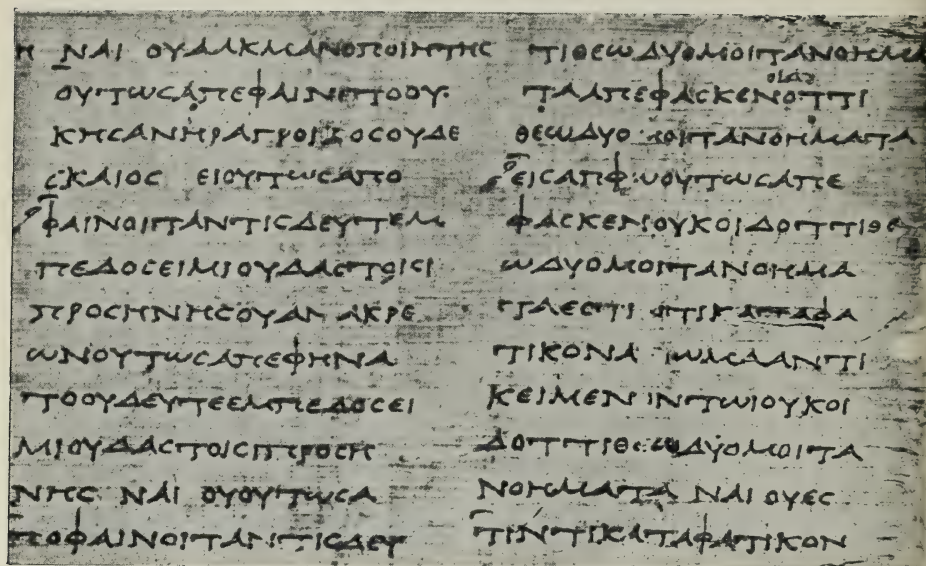 Η ΝΑΙ ΟΥΑΛΚΜΑΝΟΠΟΙΗΤΗϹ
ΟΥΤΩϹΑΠΕΦΑΙΝΕΤΟΟΥ
ΚΗϹΑΝΗΡΑΓΡΟΙΚΟϹΟΥΔΕ
ϹΚΑΙΟϹ ΕΙΟΥΤΩϹΑΠΟ
ΦΑΙΝΟΙΤΑΝΤΙϹΔΕΥΤΕΜ
ΠΕΔΟϹΕΙΜΙΟΥΔΑϹΤΟΙϹΙ
ΠΡΟϹΗΝΗϹΟΥΑΝΑΚΡΕ
ΩΝΟΥΤΩϹΑΠΕΦΗΝΑ
ΤΟΟΥΔΕΥΤΕΕΜΠΕΔΟϹΕΙ
ΜΙΟΥΔΑϹΤΟΙϹΠΡΟϹΗ
ΝΗϹ ΝΑΙ ΟΥΟΥΤΩϹΑ
ΠΟΦΑΙΝΟΙΤΑΝΤΙϹΔΕΥ
ΤΙΘΕΩΔΥΟΜΟΙΤΑΝΟΗΜΑ
ΤΑΑΠΕΦΑϹΚΕΝΟΤΤΙ
ΘΕΩΔΥΟ ΜΟΙΤΑΝΟΗΜΑΤΑ
ΕΙϹΑΠΦΩΟΥΤΩϹΑΠΕ
ΦΑϹΚΕΝΟΥΚΟΙΔΟΤΤΙΘΕ
ΩΔΥΟΜΟΙΤΑΝΟΗΜΑ
ΤΑΕϹΤΙ ΤΙΚΑΤΑΦΑ
ΤΙΚΟΝΑΞΙΩΜΑΑΝΤΙ
ΚΕΙΜΕΝΟΝΤΩΙΟΥΚΟΙ
ΔΟΤΤΙΘΕΩΔΥΟΜΟΙΤΑ
ΝΟΗΜΑΤΑ ΝΑΙ ΟΥΕϹ
ΤΙΝΤΙΚΑΤΑΦΑΤΙΚΟΝ